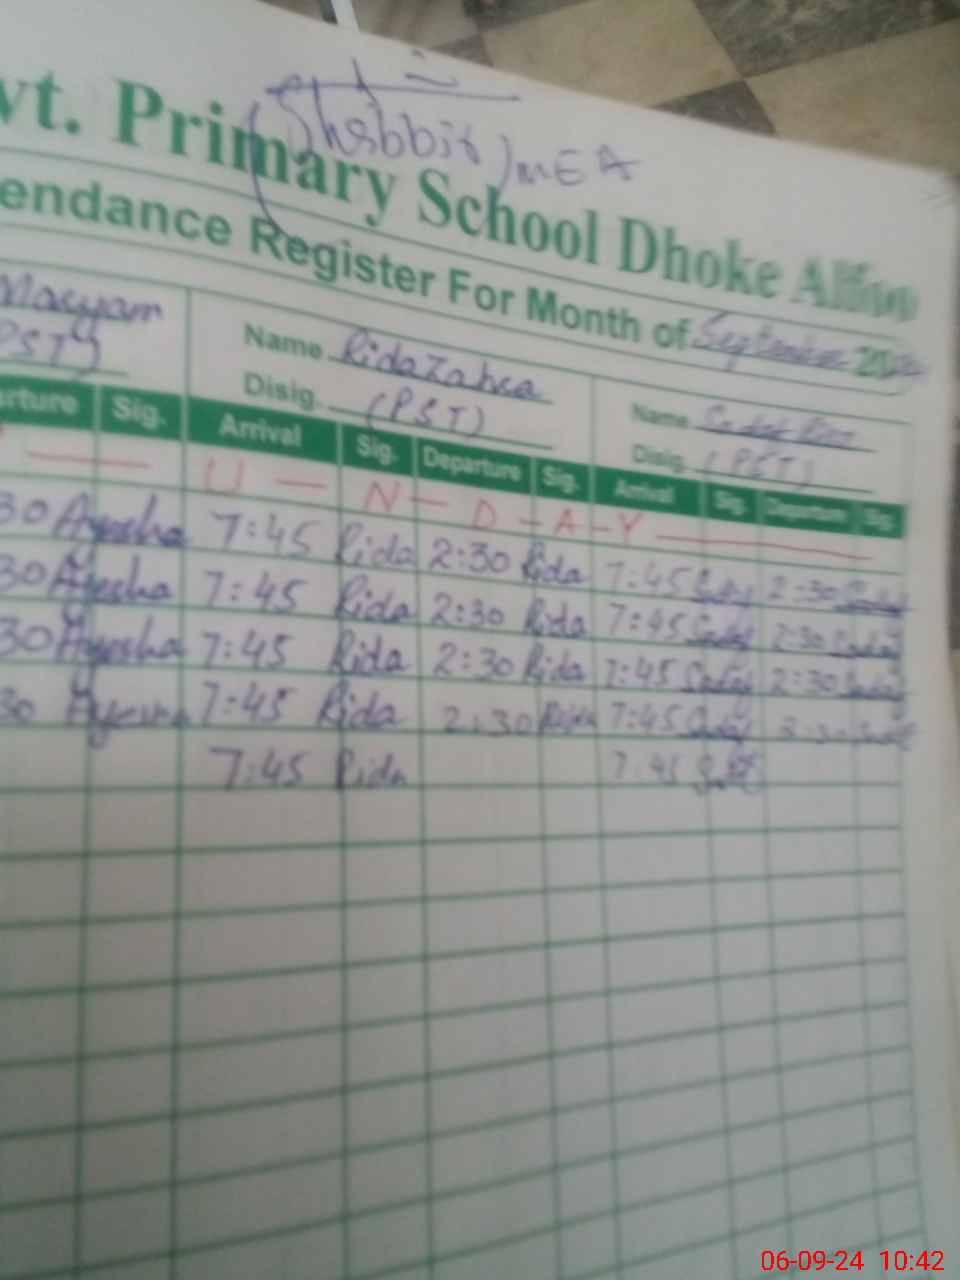 (Shabbir) MEA
vt. Primary School Dhoke
endance Register For Month of September 20
Maryam Name Rida Zahra Name
PST) Disig. (PST) Disig. (PST)
arture Sig. Arrival Sig. Departure Sig. Arrival Sig. Departure Sig.
U — N — D — A — Y
30 Ayesha 7:45 Rida 2:30 Rida 7:45 2:30
30 Ayesha 7:45 Rida 2:30 Rida 7:45 2:30
30 Ayesha 7:45 Rida 2:30 Rida 7:45 2:30
30 Ayesha 7:45 Rida 2:30 Rida 7:45 2:30
7:45 Rida 7:45
06-09-24 10:42